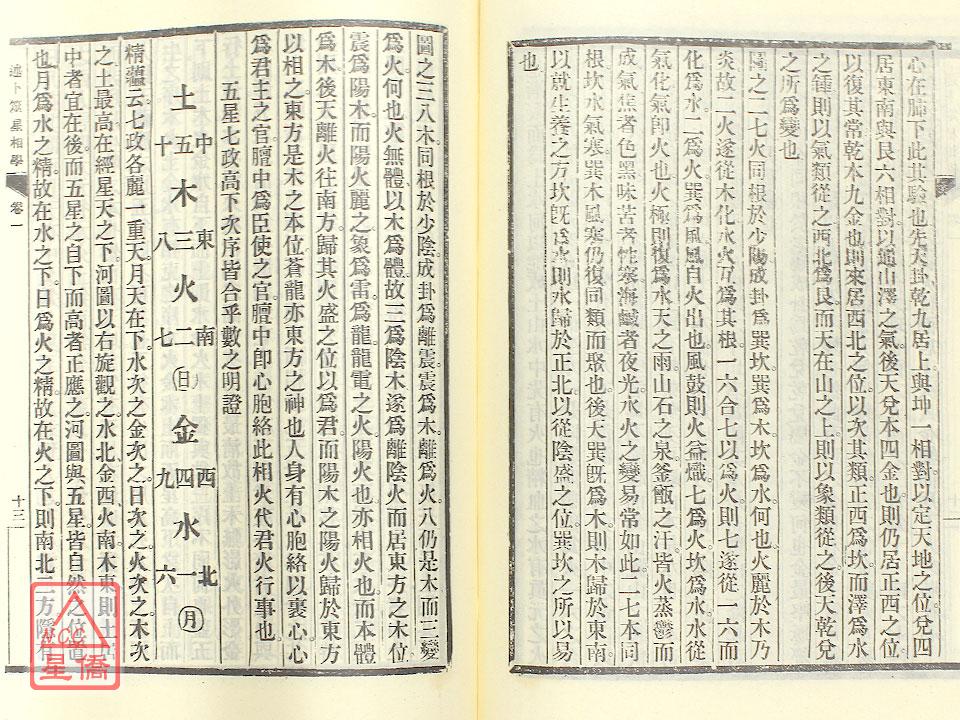 心在肺下此其驗也先天卦乾九居上與坤一相對以定天地之位兌四
居東南與艮六相對以通山澤之氣後天兌本四金也則仍居正西之位
以復其常乾本九金也則來居西北之位以次其類正西爲坎而澤爲水
之鍾則以氣類從之西北爲艮而天在山之上則以象類從之後天乾兌
之所爲變也
圖之二七火同根於少陽成卦爲巽坎巽爲木坎爲水何也火麗於木乃
炎故二火遂從木化水火互爲其根一六合七以爲火則七遂從一六而
化爲水二爲火巽爲風風自火出也風鼓則火益熾七爲火坎爲水水從
氣化氣卽火也火極則復爲水天之雨山石之泉釜甑之汗皆火蒸鬱而
成氣焦者色黑味苦者性寒海鹹者夜光水火之變易常如此二七本同
根坎水氣寒巽木風寒仍復同類而聚也後天巽旣爲木則木歸於東南
以就生養之方坎旣爲水則水歸於正北以從陰盛之位巽坎之所以易
也
圖之三八木同根於少陰成卦爲離震震爲木離爲火八仍是木而三變
爲火何也火無體以木爲體故三爲陰木遂爲離陰火而居東方之木位
震爲陽木而陽火麗之象爲雷爲龍龍電之火陽火也亦相火也而本體
爲木後天離火往南方歸其火盛之位以爲君而陽木之陽火歸於東方
以相之東方是木之本位蒼龍亦東方之神也人身有心胞絡以裹心心
爲君主之官膻中爲臣使之官膻中卽心胞絡此相火代君火行事也
五星七政高下次序皆合乎數之明證
中 東 南 西 北
土五十 木三八 火二七 日 金四九 水一六 月
精蘊云七政各麗一重天月天在下水次之金次之日次之火次之木次
之土最高在經星天之下河圖以右旋觀之水北金西火南木東則土居
中者宜在後而五星之自下而高者正應之河圖與五星皆自然之位
也月爲水之精故在水之下日爲火之精故在火之下則南北二方隱有
述卜筮星相學
卷一
十三
星僑
NCC